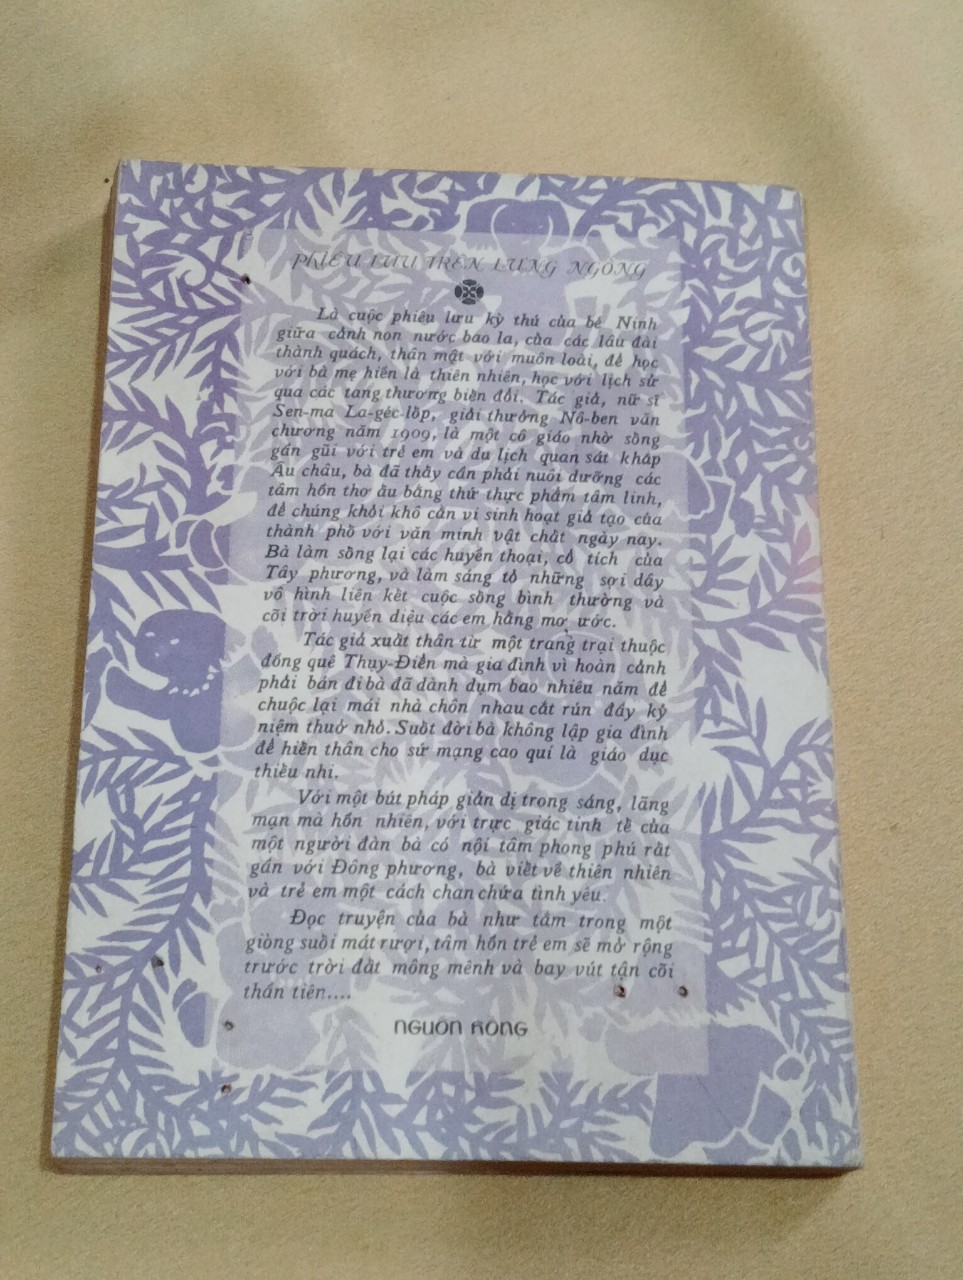 PHIÊU LƯU TRÊN LƯNG NGỖNG
Là cuộc phiêu lưu kỳ thú của bé Ninh
giữa cảnh non nước bao la, của các lâu đài
thành quách, thân mật với muôn loài, để học
với bà mẹ hiền là thiên nhiên, học với lịch sử
qua các tang thương biến đổi. Tác giả, nữ sĩ
Sen-ma La-géc-lốp, giải thưởng Nô-ben văn
chương năm 1909, là một cô giáo nhờ sống
gần gũi với trẻ em và du lịch quan sát khắp
Âu châu, bà đã thấy cần phải nuôi dưỡng các
tâm hồn thơ ấu bằng thứ thực phẩm tâm linh,
để chúng khỏi khô cằn vì sinh hoạt giả tạo của
thành phố với văn minh vật chất ngày nay.
Bà làm sống lại các huyền thoại, cổ tích của
Tây phương, và làm sáng tỏ những sợi dây
vô hình liên kết cuộc sống bình thường và
cõi trời huyền diệu các em hằng mơ ước.
Tác giả xuất thân từ một trang trại thuộc
đồng quê Thụy-Điển mà gia đình vì hoàn cảnh
phải bán đi bà đã dành dụm bao nhiêu năm để
chuộc lại mái nhà chôn nhau cắt rún đầy kỷ
niệm thuở nhỏ. Suốt đời bà không lập gia đình
để hiến thân cho sứ mạng cao quí là giáo dục
thiếu nhi.
Với một bút pháp giản dị trong sáng, lãng
mạn mà hồn nhiên, với trực giác tinh tế của
một người đàn bà có nội tâm phong phú rất
gần với Đông phương, bà viết về thiên nhiên
và trẻ em một cách chan chứa tình yêu.
Đọc truyện của bà như tắm trong một
giòng suối mát rượi, tâm hồn trẻ em sẽ mở rộng
trước trời đất mông mênh và bay vút tận cõi
thần tiên....
NGUỒN RỒNG